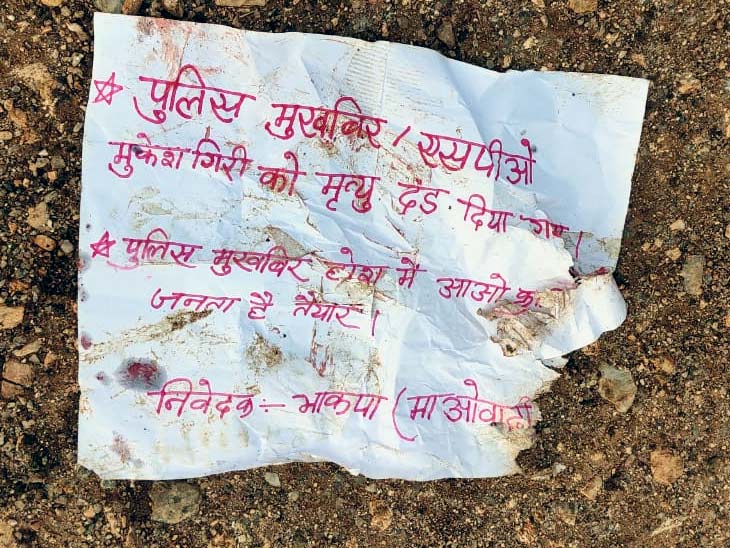 ☆ पुलिस मुखबिर / एसपीओ
मुकेश गिरी को मृत्यु दंड दिया गया।
☆ पुलिस मुखबिर होश में आओ
जनता है तैयार।
निवेदक :- भाकपा (माओवादी